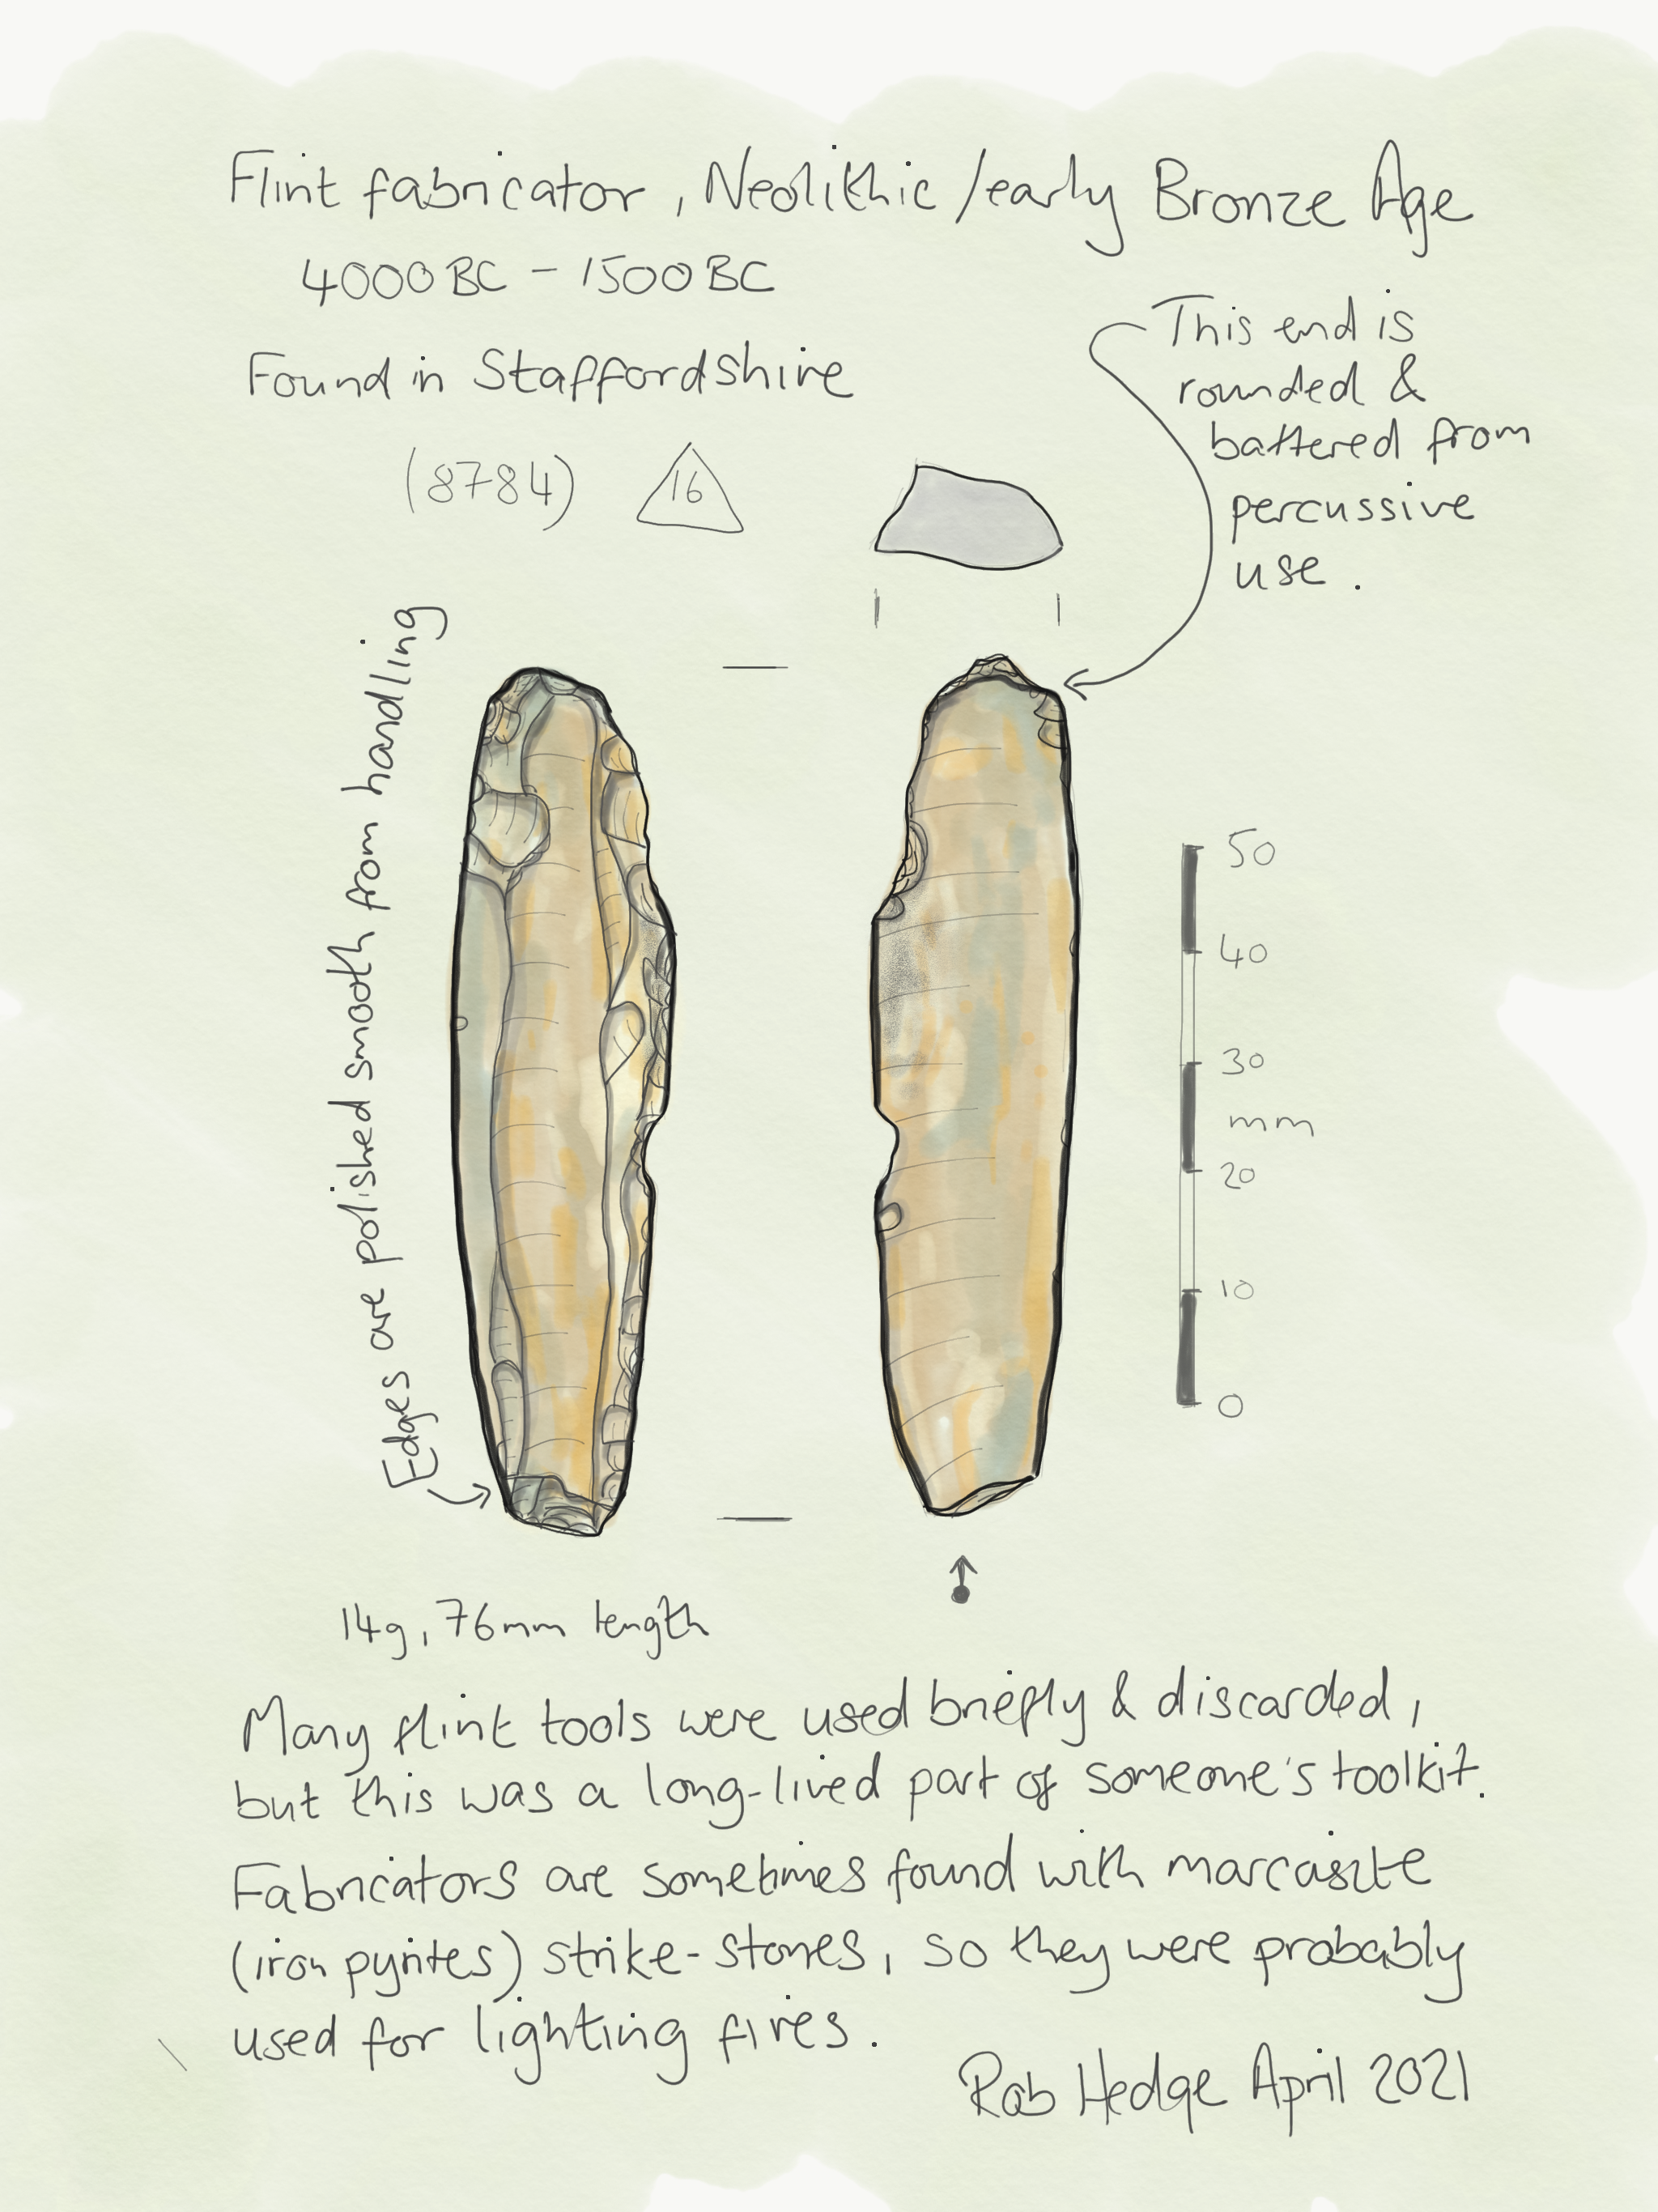 Flint fabricator, Neolithic/early Bronze Age
4000BC - 1500BC
Found in Staffordshire
(8784) 16
This end is
rounded &
battered from
percussive
use.
Edges are polished smooth from handling
50
40
30
mm
20
10
0
14g, 76mm length
Many flint tools were used briefly & discarded,
but this was a long-lived part of someone's toolkit.
Fabricators are sometimes found with marcasite
(iron pyrites) strike-stones, so they were probably
used for lighting fires.
Rob Hedge April 2021